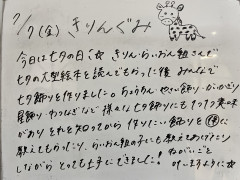 7/7(金) きりんぐみ
今日は七夕の日!☆ きりん・らいおん組さんで
七夕の大型絵本を読んでもらった後 みんなで
七夕飾りを作りました。ちょうちん・やさい飾り・かいがら
星飾り・わつなぎなど 様々な七夕飾りにも1つ1つ意味
がありそれを知ってから 作りたい飾りを
教えもらったり、らいおん組の子にも教えてあげたり
しながら とっても上手にできました!
ねがいごと
叶いますように☆